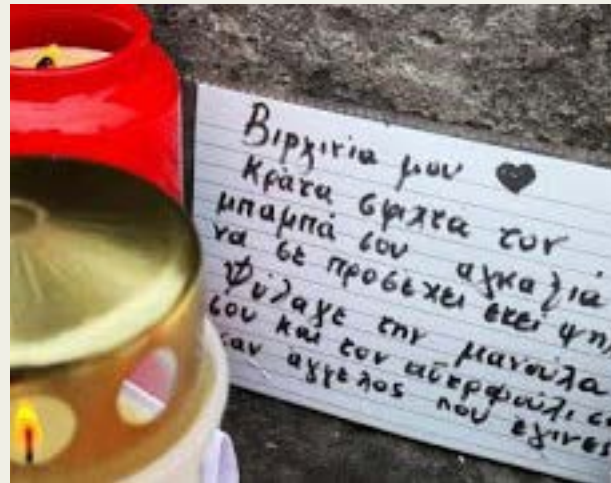 Βιργινία μου ♥
Κράτα σφιχτα τον
μπαμπά σου αγκαλιά
να σε προσέχει εκεί ψηλ
Φύλαγε την μανούλα
σου και τον αδερφούλι σ
σαν άγγελος που έγινες